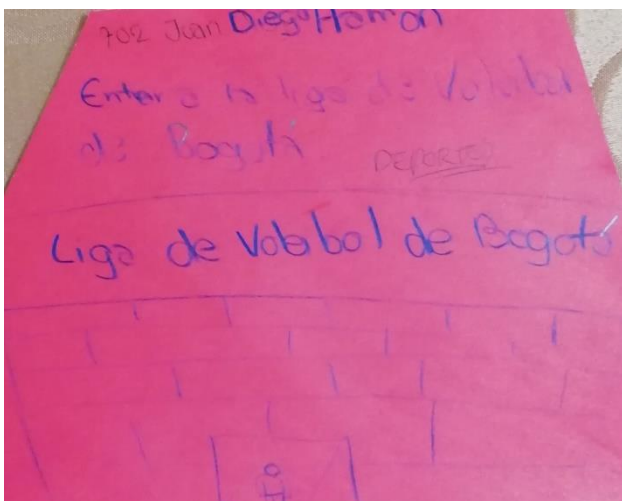 702 Juan Diego Hamon
Entar a la liga de Voleibol
de Bogotá
DEPORTES
Liga de Volebol de Bogotá